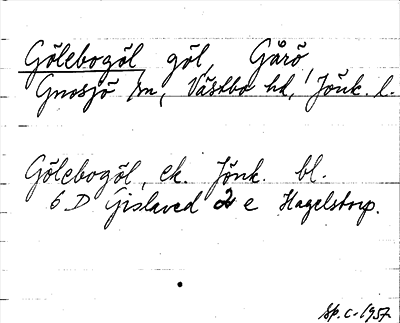 Gölebogöl göl, Gårö,
Gnosjö sn, Västbo hd, Jönk. l.
Gölebogöl, ek. Jönk. bl.
6 D Gislaved 2 e Hagelstorp.
Sp. c. 1957